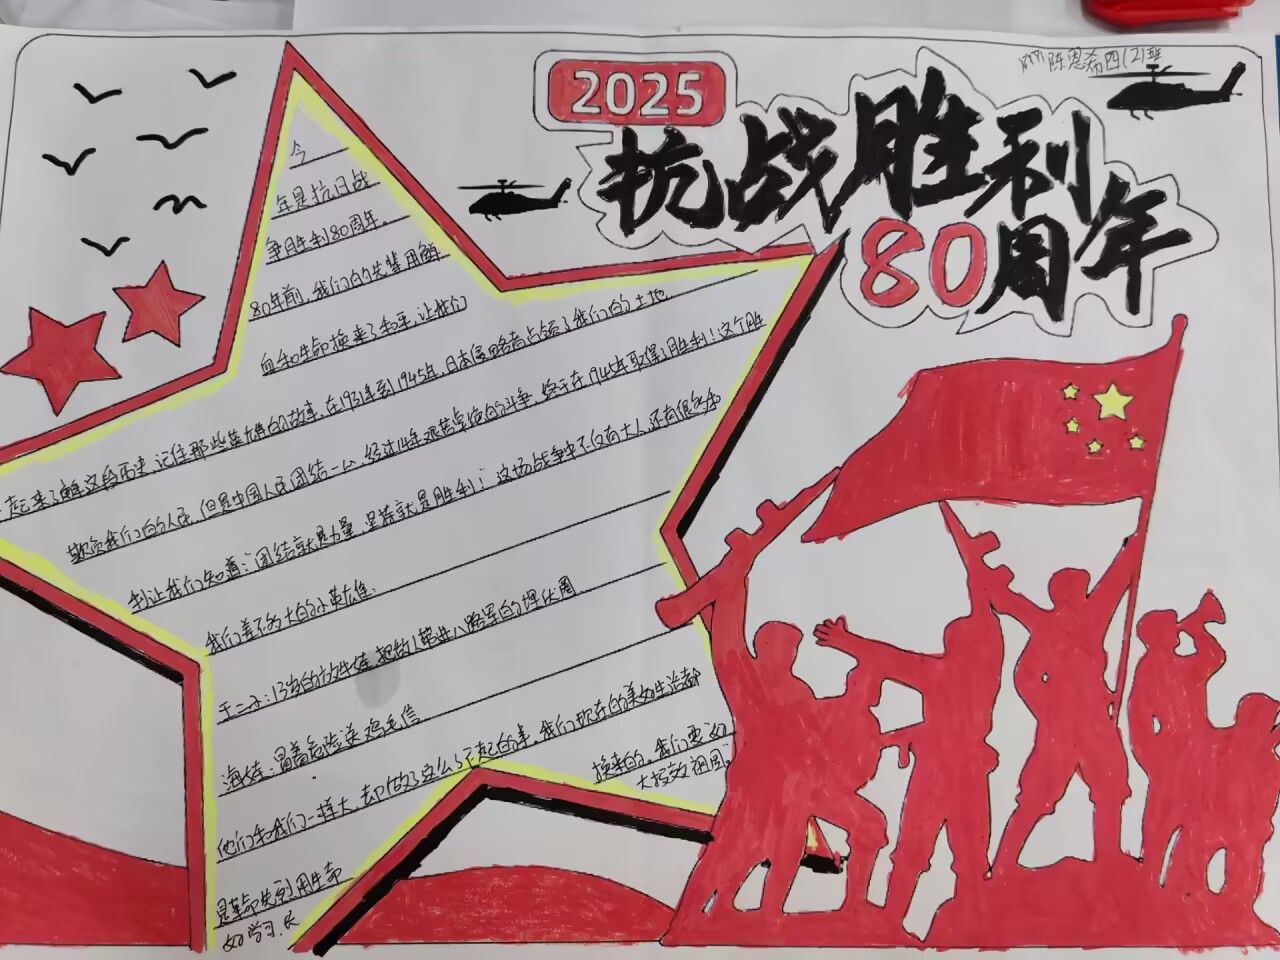 陈恩希四(2)班
2025
抗战胜利
80周年
今
年是抗日战
争胜利80周年。
80年前,我们的先辈用鲜
血和生命换来了和平,让我们
一起来了解这段历史,记住那些英雄的故事。在1931年到1945年,日本侵略者占领了我们的土地,
欺负我们的人民,但是中国人民团结一心,经过14年艰苦卓绝的斗争,终于在1945年取得了胜利!这个胜
利让我们知道:团结就是力量,坚持就是胜利!这场战争中不仅有大人,还有很多和
我们差不多大的小英雄:
王二小:13岁的放牛娃,把敌人带进八路军的埋伏圈
海娃:冒着危险送鸡毛信
他们和我们一样大,却做了这么了不起的事,我们现在的美好生活都
是革命先烈用生命
换来的,我们要好
好学习,长
大报效祖国。